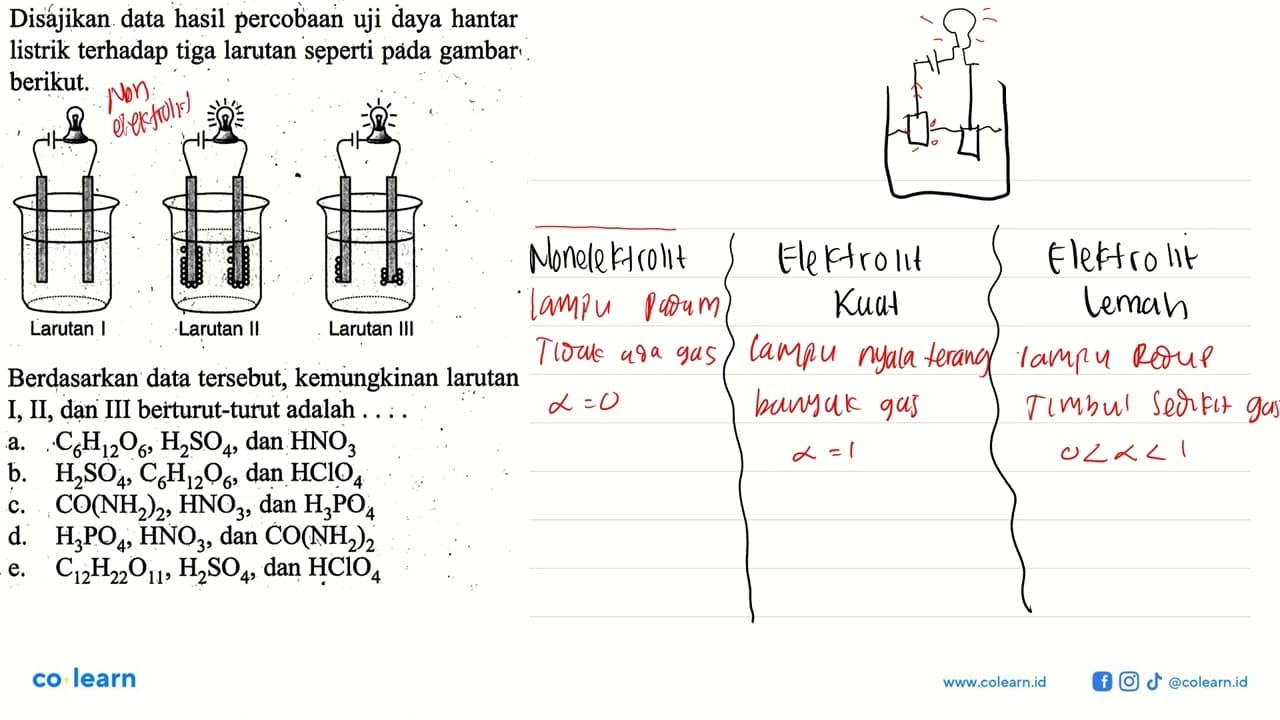 Disajikan data hasil percobaan uji daya hantar
listrik terhadap tiga larutan seperti pada gambar
berikut.
Non
elektrolit
Larutan I
Larutan II
Larutan III
Berdasarkan data tersebut, kemungkinan larutan
I, II, dan III berturut-turut adalah . . . .
a. C₆H₁₂O₆, H₂SO₄, dan HNO₃
b. H₂SO₄, C₆H₁₂O₆, dan HClO₄
c. CO(NH₂)₂, HNO₃, dan H₃PO₄
d. H₃PO₄, HNO₃, dan CO(NH₂)₂
e. C₁₂H₂₂O₁₁, H₂SO₄, dan HClO₄
Nonelektrolit
lampu padam
Tidak ada gas
α = 0
Elektrolit
Kuat
lampu nyala terang
banyak gas
α = 1
Elektrolit
lemah
lampu Redup
Timbul sedikit gas
0 < α < 1
co learn
www.colearn.id
@colearn.id